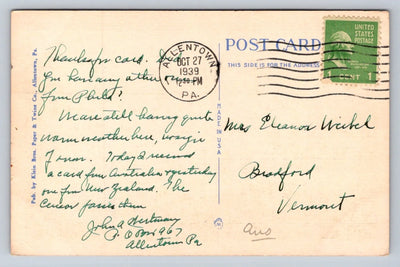 Thanks for card. Have
you had any other cards
from Phila?
We are still having quite
warm weather here, no sign
of snow. Today I received
a card from Australia & yesterday
one from New Zealand. The
Censor passes them
John A Hartman
P O Box 967
Allentown Pa
Pub. by Klein Bros. Paper & Twine Co., Allentown, Pa.
ALLENTOWN
OCT 27
1939
PA.
MADE IN U.S.A.
POST CARD
THIS SIDE IS FOR THE ADDRESS
UNITED STATES
POSTAGE
1 CENT 1
Mrs Eleanor Weibel
Bradford
Vermont
Ans